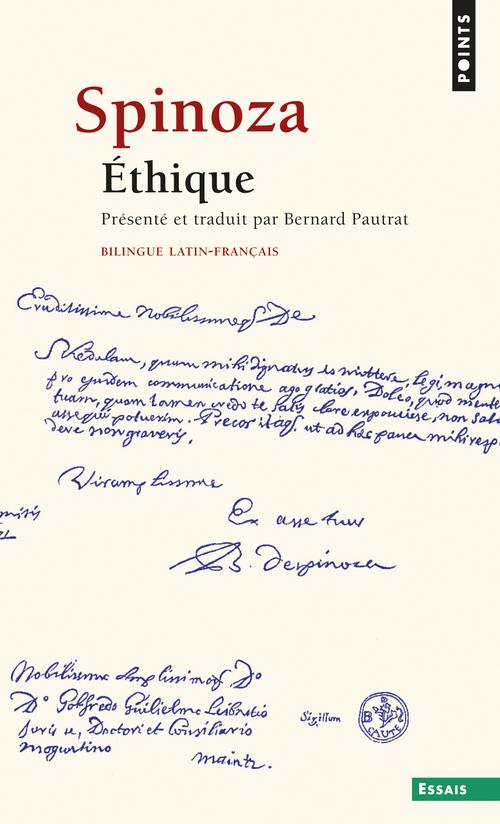 POINTS
Spinoza
Éthique
Présenté et traduit par Bernard Pautrat
BILINGUE LATIN-FRANÇAIS
Eruditissime Nobilissimeq Do
Schedulam, quam mihi dignatus es mittere, legi, magn
pro ejusdem communicatione ago gratias. Doleo, quod mente
tuam, quam tamen credo te satis clare exposuisse, non sat
assequi potuerim. Precor itaq. ut ad hæc pauca mihi resp
deve non graveris.
Vir amplissime
Ex asse tuus
B. despinoza
Nobilissimo Amplissimoq Do
Do Gotfredo Guilielmo Leibnitio
Juris u, Doctori et Consiliario
moguntino
maintz.
Sigillum
CAUTE
ESSAIS